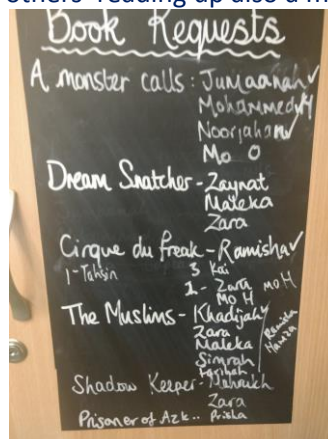 others reading up also a m
Book Requests
A monster calls : Jumaanah✓
Mohammed✓
Noorjahan✓
Mo O
Dream Snatcher - Zaynat
Maleka
Zara
Cirque du freak - Ramisha✓
1-Tahsin 3 Kai
2.- Zara MO H
MO H
The Muslims - Khadijah
Zara
Maleka
Simrah
Ramisha
Hamza
Shadow Keeper - Mahrukh
Zara
Prisoner of Azk.. Prisha